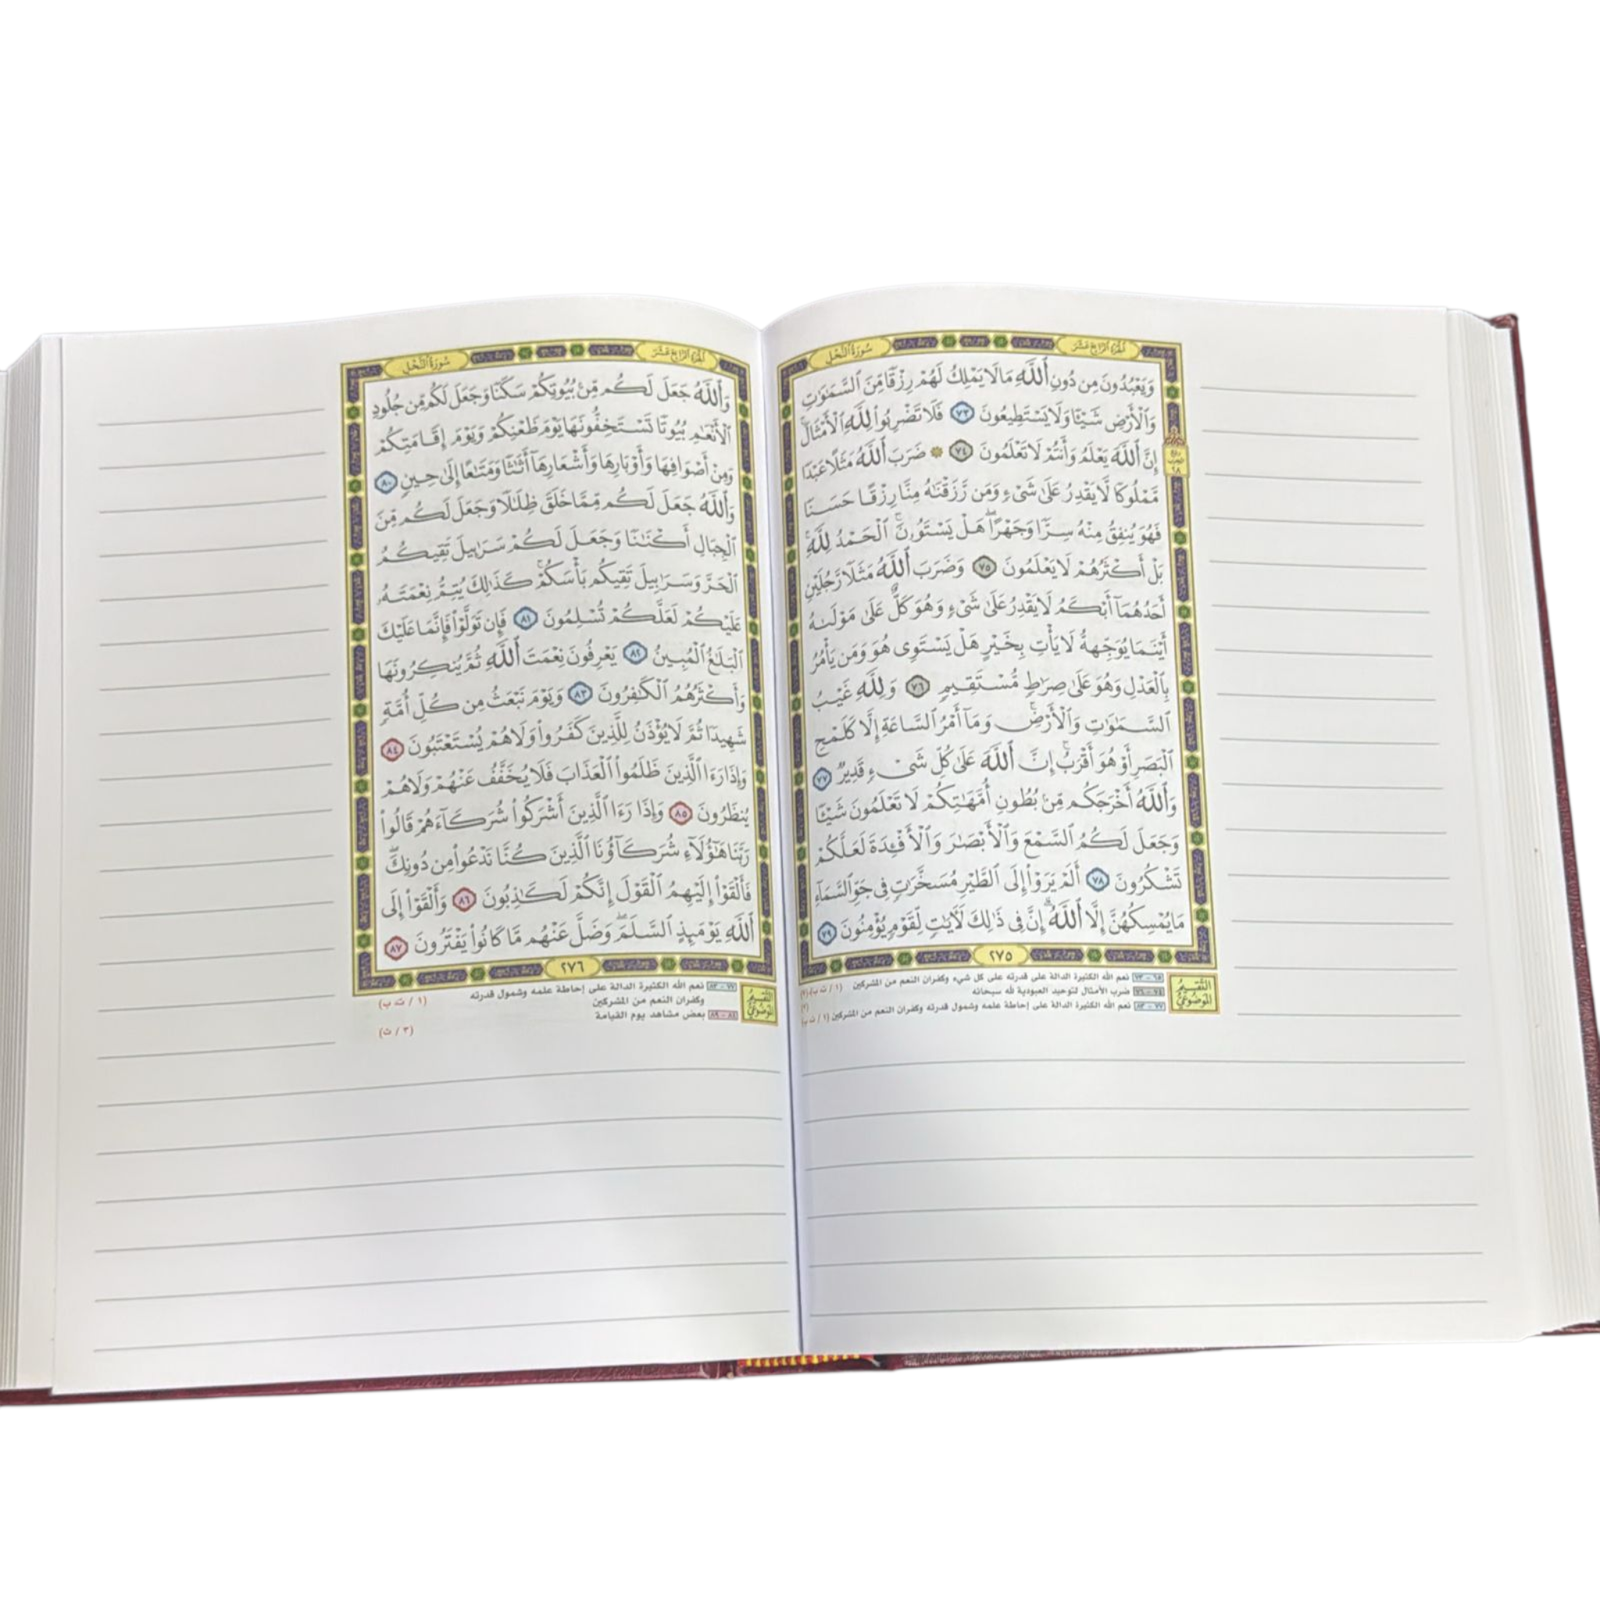 الجزء الرابع عشر
سورة النحل
وَيَعْبُدُونَ مِن دُونِ ٱللَّهِ مَا لَا يَمْلِكُ لَهُمْ رِزْقًا مِّنَ ٱلسَّمَٰوَٰتِ
وَٱلْأَرْضِ شَيْـًٔا وَلَا يَسْتَطِيعُونَ ٧٣ فَلَا تَضْرِبُوا۟ لِلَّهِ ٱلْأَمْثَالَ ۚ
إِنَّ ٱللَّهَ يَعْلَمُ وَأَنتُمْ لَا تَعْلَمُونَ ٧٤ ۞ ضَرَبَ ٱللَّهُ مَثَلًا عَبْدًا
مَّمْلُوكًا لَّا يَقْدِرُ عَلَىٰ شَىْءٍ وَمَن رَّزَقْنَٰهُ مِنَّا رِزْقًا حَسَنًا
فَهُوَ يُنفِقُ مِنْهُ سِرًّا وَجَهْرًا ۖ هَلْ يَسْتَوُۥنَ ۚ ٱلْحَمْدُ لِلَّهِ ۚ
بَلْ أَكْثَرُهُمْ لَا يَعْلَمُونَ ٧٥ وَضَرَبَ ٱللَّهُ مَثَلًا رَّجُلَيْنِ
أَحَدُهُمَآ أَبْكَمُ لَا يَقْدِرُ عَلَىٰ شَىْءٍ وَهُوَ كَلٌّ عَلَىٰ مَوْلَىٰهُ
أَيْنَمَا يُوَجِّههُّ لَا يَأْتِ بِخَيْرٍ هَلْ يَسْتَوِى هُوَ وَمَن يَأْمُرُ
بِٱلْعَدْلِ وَهُوَ عَلَىٰ صِرَٰطٍ مُّسْتَقِيمٍ ٧٦ وَلِلَّهِ غَيْبُ
ٱلسَّمَٰوَٰتِ وَٱلْأَرْضِ ۚ وَمَآ أَمْرُ ٱلسَّاعَةِ إِلَّا كَلَمْحِ
ٱلْبَصَرِ أَوْ هُوَ أَقْرَبُ ۚ إِنَّ ٱللَّهَ عَلَىٰ كُلِّ شَىْءٍ قَدِيرٌ ٧٧
وَٱللَّهُ أَخْرَجَكُم مِّنۢ بُطُونِ أُمَّهَٰتِكُمْ لَا تَعْلَمُونَ شَيْـًٔا
وَجَعَلَ لَكُمُ ٱلسَّمْعَ وَٱلْأَبْصَٰرَ وَٱلْأَفْـِٔدَةَ لَعَلَّكُمْ
تَشْكُرُونَ ٧٨ أَلَمْ يَرَوْا۟ إِلَى ٱلطَّيْرِ مُسَخَّرَٰتٍ فِى جَوِّ ٱلسَّمَآءِ
مَا يُمْسِكُهُنَّ إِلَّا ٱللَّهُ ۗ إِنَّ فِى ذَٰلِكَ لَءَايَٰتٍ لِّقَوْمٍ يُؤْمِنُونَ ٧٩
٢٧٥
التقسيم الموضوعي
٦٥ - ٧٣ نعم الله الكثيرة الدالة على قدرته على كل شيء وكفران النعم من المشركين
٧٤ - ٧٦ ضرب الأمثال لتوحيد العبودية لله سبحانه
٧٧ - ٨٣ نعم الله الكثيرة الدالة على إحاطة علمه وشمول قدرته وكفران النعم من المشركين (١ / ث ب)
الجزء الرابع عشر
سورة النحل
وَٱللَّهُ جَعَلَ لَكُم مِّنۢ بُيُوتِكُمْ سَكَنًا وَجَعَلَ لَكُم مِّن جُلُودِ
ٱلْأَنْعَٰمِ بُيُوتًا تَسْتَخِفُّونَهَا يَوْمَ ظَعْنِكُمْ وَيَوْمَ إِقَامَتِكُمْ ۙ
وَمِنْ أَصْوَافِهَا وَأَوْبَارِهَا وَأَشْعَارِهَآ أَثَٰثًا وَمَتَٰعًا إِلَىٰ حِينٍ ٨٠
وَٱللَّهُ جَعَلَ لَكُم مِّمَّا خَلَقَ ظِلَٰلًا وَجَعَلَ لَكُم مِّنَ
ٱلْجِبَالِ أَكْنَٰنًا وَجَعَلَ لَكُمْ سَرَٰبِيلَ تَقِيكُمُ
ٱلْحَرَّ وَسَرَٰبِيلَ تَقِيكُم بَأْسَكُمْ ۚ كَذَٰلِكَ يُتِمُّ نِعْمَتَهُۥ
عَلَيْكُمْ لَعَلَّكُمْ تُسْلِمُونَ ٨١ فَإِن تَوَلَّوْا۟ فَإِنَّمَا عَلَيْكَ
ٱلْبَلَٰغُ ٱلْمُبِينُ ٨٢ يَعْرِفُونَ نِعْمَتَ ٱللَّهِ ثُمَّ يُنكِرُونَهَا
وَأَكْثَرُهُمُ ٱلْكَٰفِرُونَ ٨٣ وَيَوْمَ نَبْعَثُ مِن كُلِّ أُمَّةٍ
شَهِيدًا ثُمَّ لَا يُؤْذَنُ لِلَّذِينَ كَفَرُوا۟ وَلَا هُمْ يُسْتَعْتَبُونَ ٨٤
وَإِذَا رَءَا ٱلَّذِينَ ظَلَمُوا۟ ٱلْعَذَابَ فَلَا يُخَفَّفُ عَنْهُمْ وَلَا هُمْ
يُنظَرُونَ ٨٥ وَإِذَا رَءَا ٱلَّذِينَ أَشْرَكُوا۟ شُرَكَآءَهُمْ قَالُوا۟
رَبَّنَا هَٰٓؤُلَآءِ شُرَكَآؤُنَا ٱلَّذِينَ كُنَّا نَدْعُوا۟ مِن دُونِكَ ۖ
فَأَلْقَوْا۟ إِلَيْهِمُ ٱلْقَوْلَ إِنَّكُمْ لَكَٰذِبُونَ ٨٦ وَأَلْقَوْا۟ إِلَى
ٱللَّهِ يَوْمَئِذٍ ٱلسَّلَمَ ۖ وَضَلَّ عَنْهُم مَّا كَانُوا۟ يَفْتَرُونَ ٨٧
٢٧٦
التقسيم الموضوعي
٧٧ - ٨٣ نعم الله الكثيرة الدالة على إحاطة علمه وشمول قدرته
وكفران النعم من المشركين (١ / ث ب)
٨٤ - ٨٩ بعض مشاهد يوم القيامة
(٣ / ث)